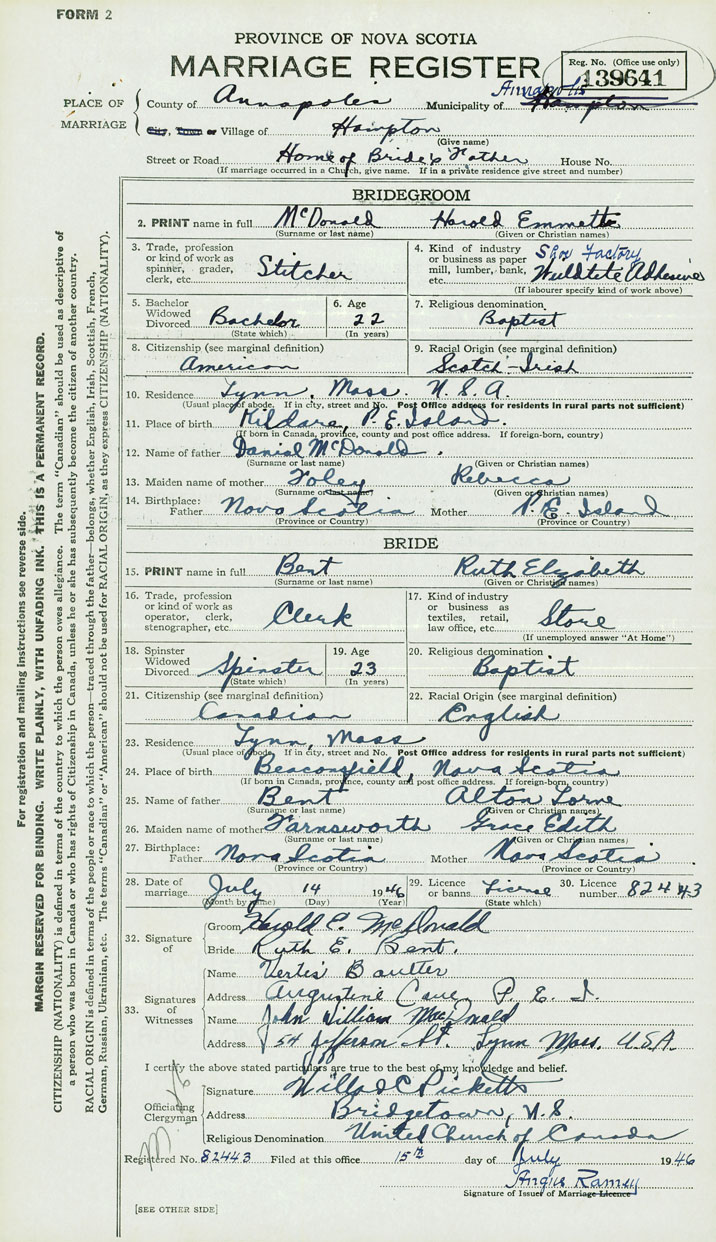 FORM 2
PROVINCE OF NOVA SCOTIA
MARRIAGE REGISTER
Reg. No. (Office use only)
139641
PLACE OF MARRIAGE
County of Annapolis Municipality of Annapolis Hampton
City, Town or Village of Hampton
(Give name)
Street or Road Home of Bride's Father House No.
(If marriage occurred in a Church, give name. If in a private residence give street and number)
BRIDEGROOM
2. PRINT name in full McDonald Harold Emmette
(Surname or last name) (Given or Christian names)
3. Trade, profession or kind of work as spinner, grader, clerk, etc. Stitcher
4. Kind of industry or business as paper mill, lumber, bank, etc. Shoe Factory
(If labourer specify kind of work above)
5. Bachelor Widowed Divorced Bachelor
(State which)
6. Age 22
(In years)
7. Religious denomination Baptist
8. Citizenship (see marginal definition) American
9. Racial Origin (see marginal definition) Scotch-Irish
10. Residence Lynn, Mass. U.S.A.
(Usual place of abode. If in city, street and No. Post Office address for residents in rural parts not sufficient)
11. Place of birth Kildare, P.E. Island.
(If born in Canada, province, county and post office address. If foreign-born, country)
12. Name of father Danial McDonald.
(Surname or last name) (Given or Christian names)
13. Maiden name of mother Foley Rebecca
(Surname or last name) (Given or Christian names)
14. Birthplace: Father Nova Scotia Mother P.E. Island
(Province or Country) (Province or Country)
BRIDE
15. PRINT name in full Bent Ruth Elizabeth
(Surname or last name) (Given or Christian names)
16. Trade, profession or kind of work as operator, clerk, stenographer, etc. Clerk
17. Kind of industry or business as textiles, retail, law office, etc. Store
(If unemployed answer "At Home")
18. Spinster Widowed Divorced Spinster
(State which)
19. Age 23
(In years)
20. Religious denomination Baptist
21. Citizenship (see marginal definition) Canadian
22. Racial Origin (see marginal definition) English
23. Residence Lynn, Mass
(Usual place of abode. If in city, street and No. Post Office address for residents in rural parts not sufficient)
24. Place of birth Beaconsfield, Nova Scotia
(If born in Canada, province, county and post office address. If foreign-born, country)
25. Name of father Bent Alton Lorne
(Surname or last name) (Given or Christian names)
26. Maiden name of mother Farnsworth Grace Edith
(Surname or last name) (Given or Christian names)
27. Birthplace: Father Nova Scotia Mother Nova Scotia
(Province or Country) (Province or Country)
28. Date of marriage July 14 1946
(Month by name) (Day) (Year)
29. Licence or banns License
(State which)
30. Licence number 82443
32. Signature of
Groom Harold E. McDonald
Bride Ruth E. Bent.
33. Signatures of Witnesses
Name Vertis
Address Augustine Cove P.E.I.
Name John William MacDonald
Address 54 Jefferson St. Lynn Mass. U.S.A.
I certify the above stated particulars are true to the best of my knowledge and belief.
Officiating Clergyman
Signature C Ricketts
Address Bridgetown, N.S.
Religious Denomination United Church of Canada
Registered No. 82443 Filed at this office 15th day of July 1946
Angus Ramey
Signature of Issuer of Marriage Licence
[SEE OTHER SIDE]
For registration and mailing instructions see reverse side.
MARGIN RESERVED FOR BINDING. WRITE PLAINLY, WITH UNFADING INK. THIS IS A PERMANENT RECORD.
CITIZENSHIP (NATIONALITY) is defined in terms of the country to which the person owes allegiance. The term "Canadian" should be used as descriptive of
a person who was born in Canada or who has rights of Citizenship in Canada, unless he or she has subsequently become the citizen of another country.
RACIAL ORIGIN is defined in terms of the people or race to which the person—traced through the father—belongs, whether English, Irish, Scottish, French,
German, Russian, Ukrainian, etc. The terms "Canadian" or "American" should not be used for RACIAL ORIGIN, as they express CITIZENSHIP (NATIONALITY).